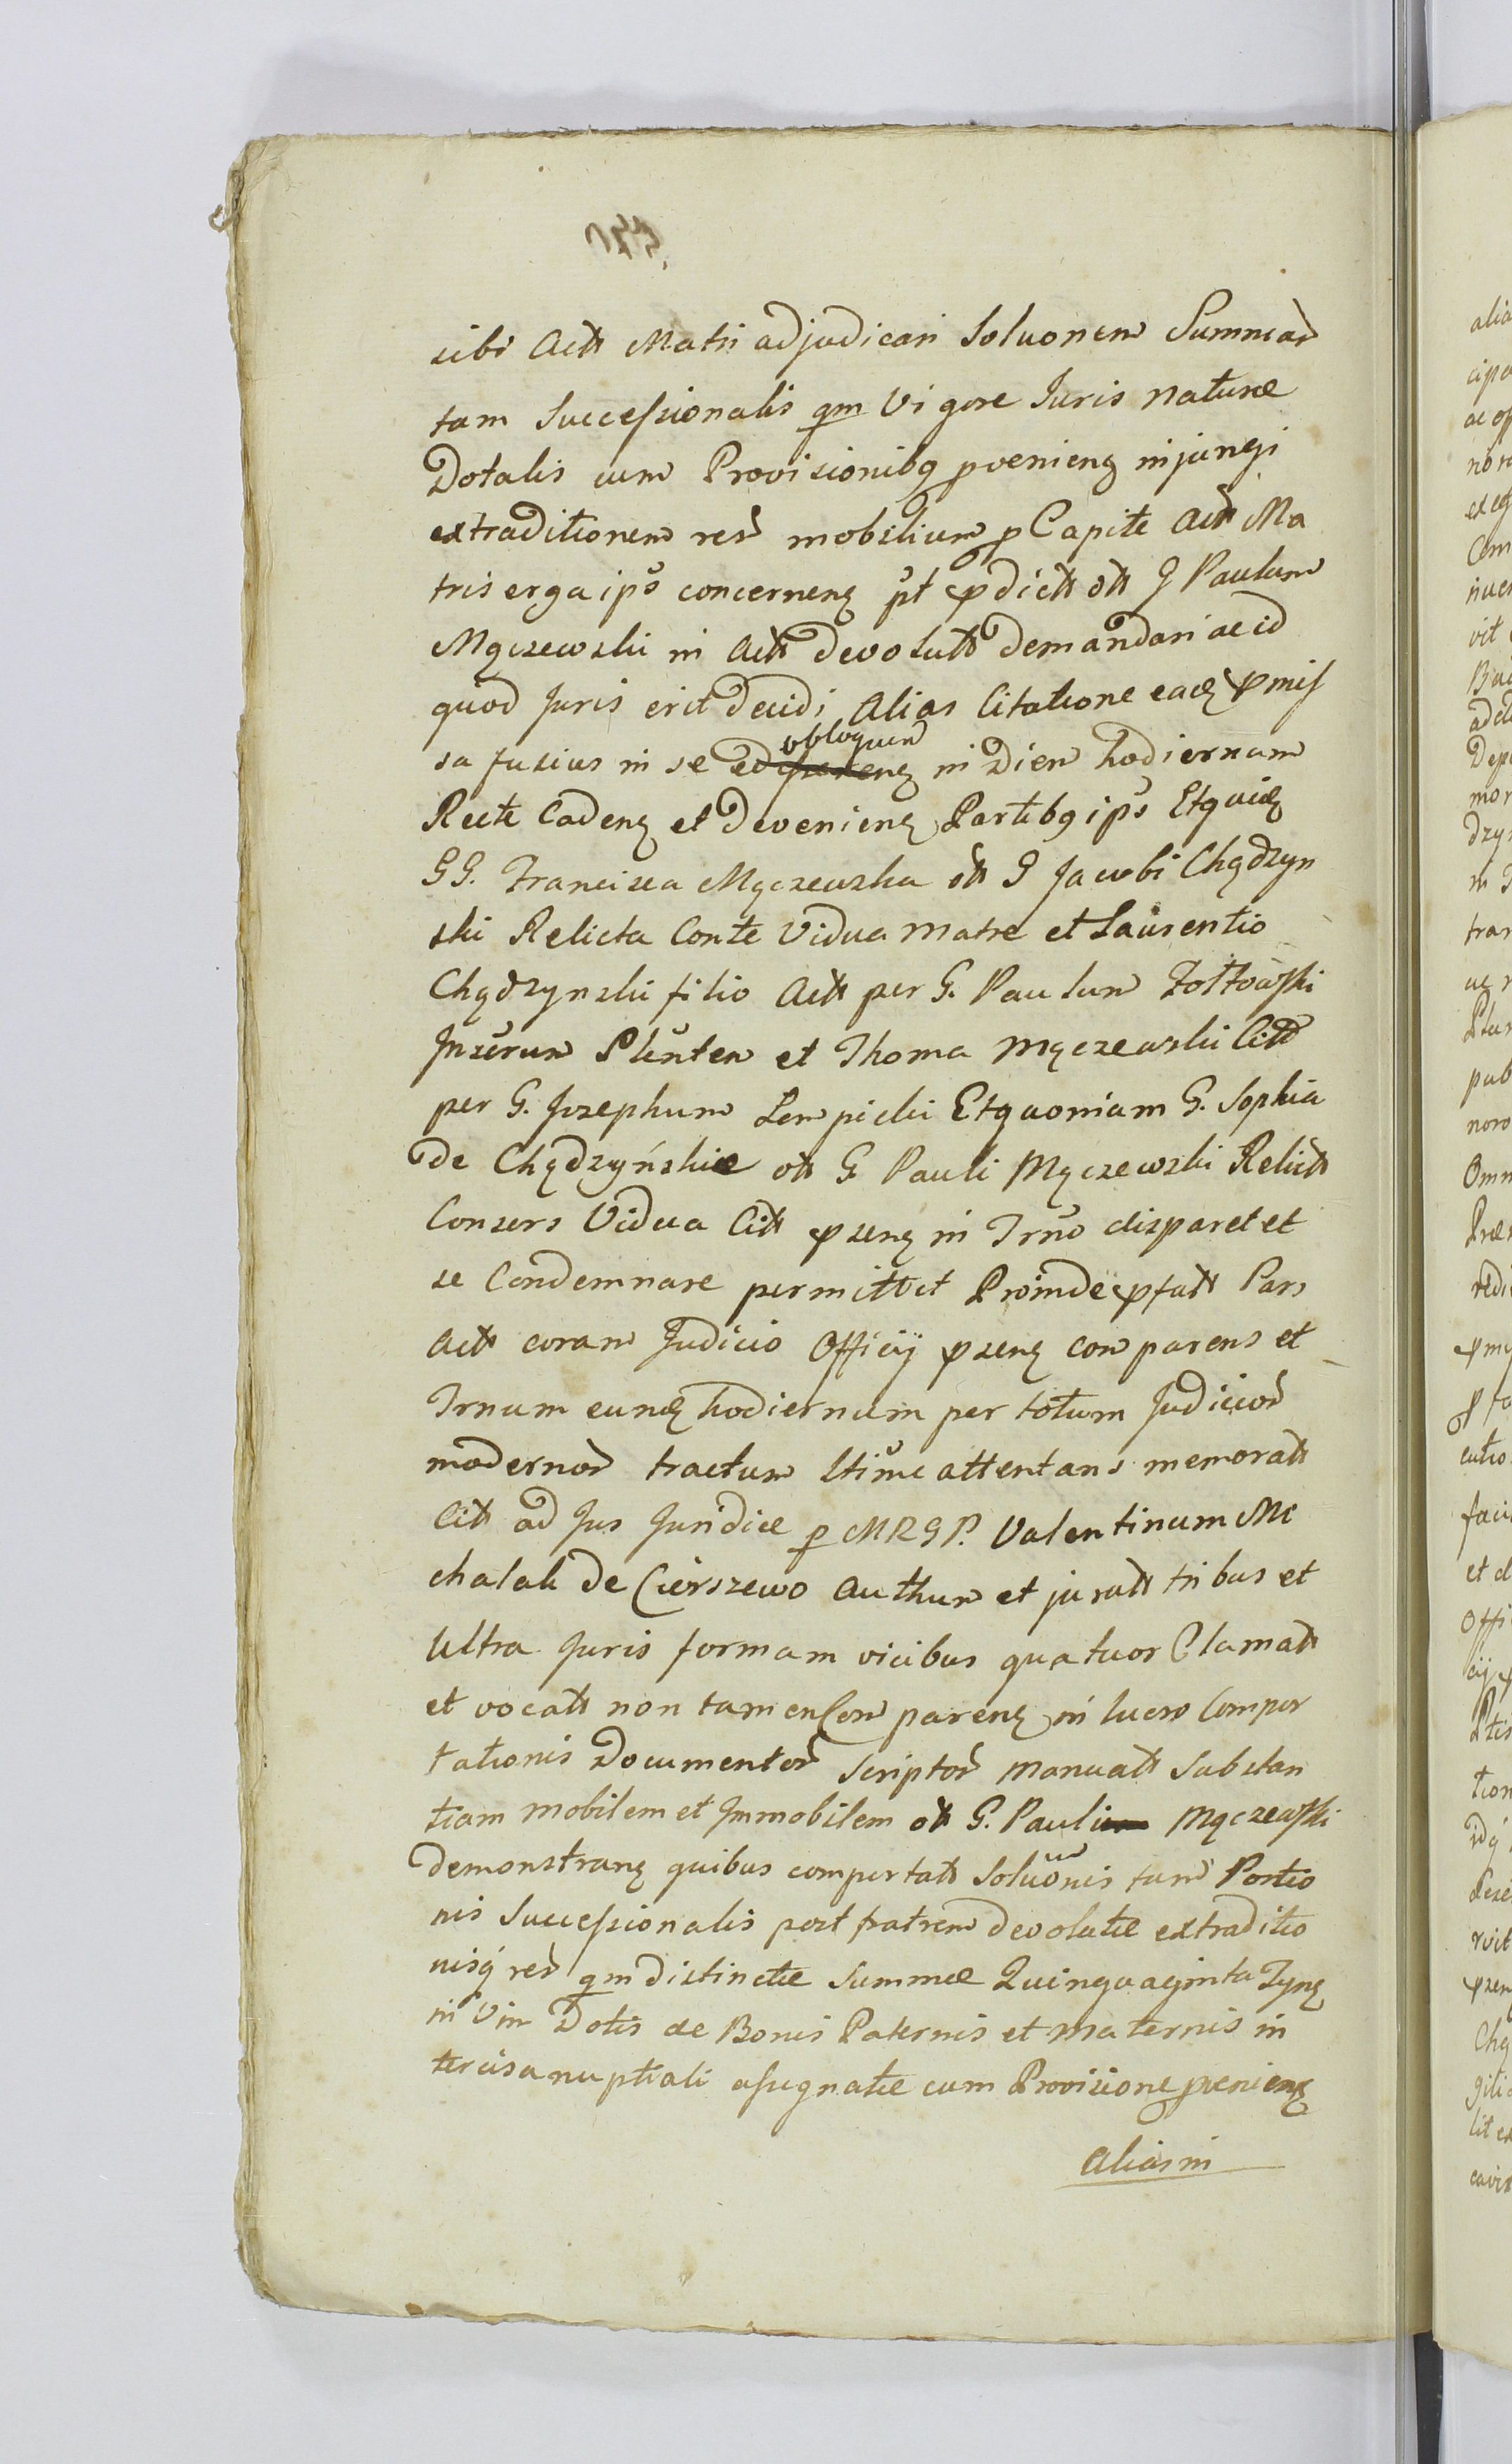 sibi Actt Matri adjudicari Soluonem Summar
tam Successionalis qm Vigore Juris naturæ
Dotalis cum Provisionibq pvenienq injungi
extraditionem rer mobilium p Capite Actt Ma
tris erga ips concernenq pt pdictt ott G Paulum
Mączewski in Actt devolutt demandari ac id
quod Juris erit decidi Alias Citatione eadq pmis
sa fusius in se obloquen in Diem hodiernam
Recte Cadenq et Devenienq Partibq ips Etquidq
GG. Francisca Mączewska ott G Jacobi Chądzyn
ski Relicta Conte Vidua Matre et Laurentio
Chądzynski filio Actt per G. Paulum Zołtowski
Jnserum Plenten et Thoma Mączewski Citt
per G. Josephum Lempicki Etquoniam G. Sophia
de Chądzyńskie ott G Pauli Mączewski Relictt
Consors Vidua Citt psenq in Trno disparet et
se Condemnare permittet Proinde pfatt Pars
Actt coram Judicio Officij psenq comparens et
Trnum eundq hodiernum per totum Judicior
modernor tractum ltime attentans memoratt
Citt ad Jus Juridice p MRGP. Valentinum Mi
chalak de Cierszewo Authum et juratt tribus et
Ultra Juris formam vicibus quatuor Clamatt
et vocatt non tamen Comparenq in lucro Compor
tationis Documentor Scriptor Manuatt Substan
tiam mobilem et Jmmobilem ott G. Pauli Mączewski
demonstranq quibus comportatt Soluonis tam Portio
nis Successionalis post fratrem devolutæ extraditio
nisq rer qm distinctæ Summæ Quinquaginta Tynq
in Vim Dotis de Bonis Paternis et Maternis in
tercisa nuptiali assignatæ cum Provisione pvenienq
Alias in